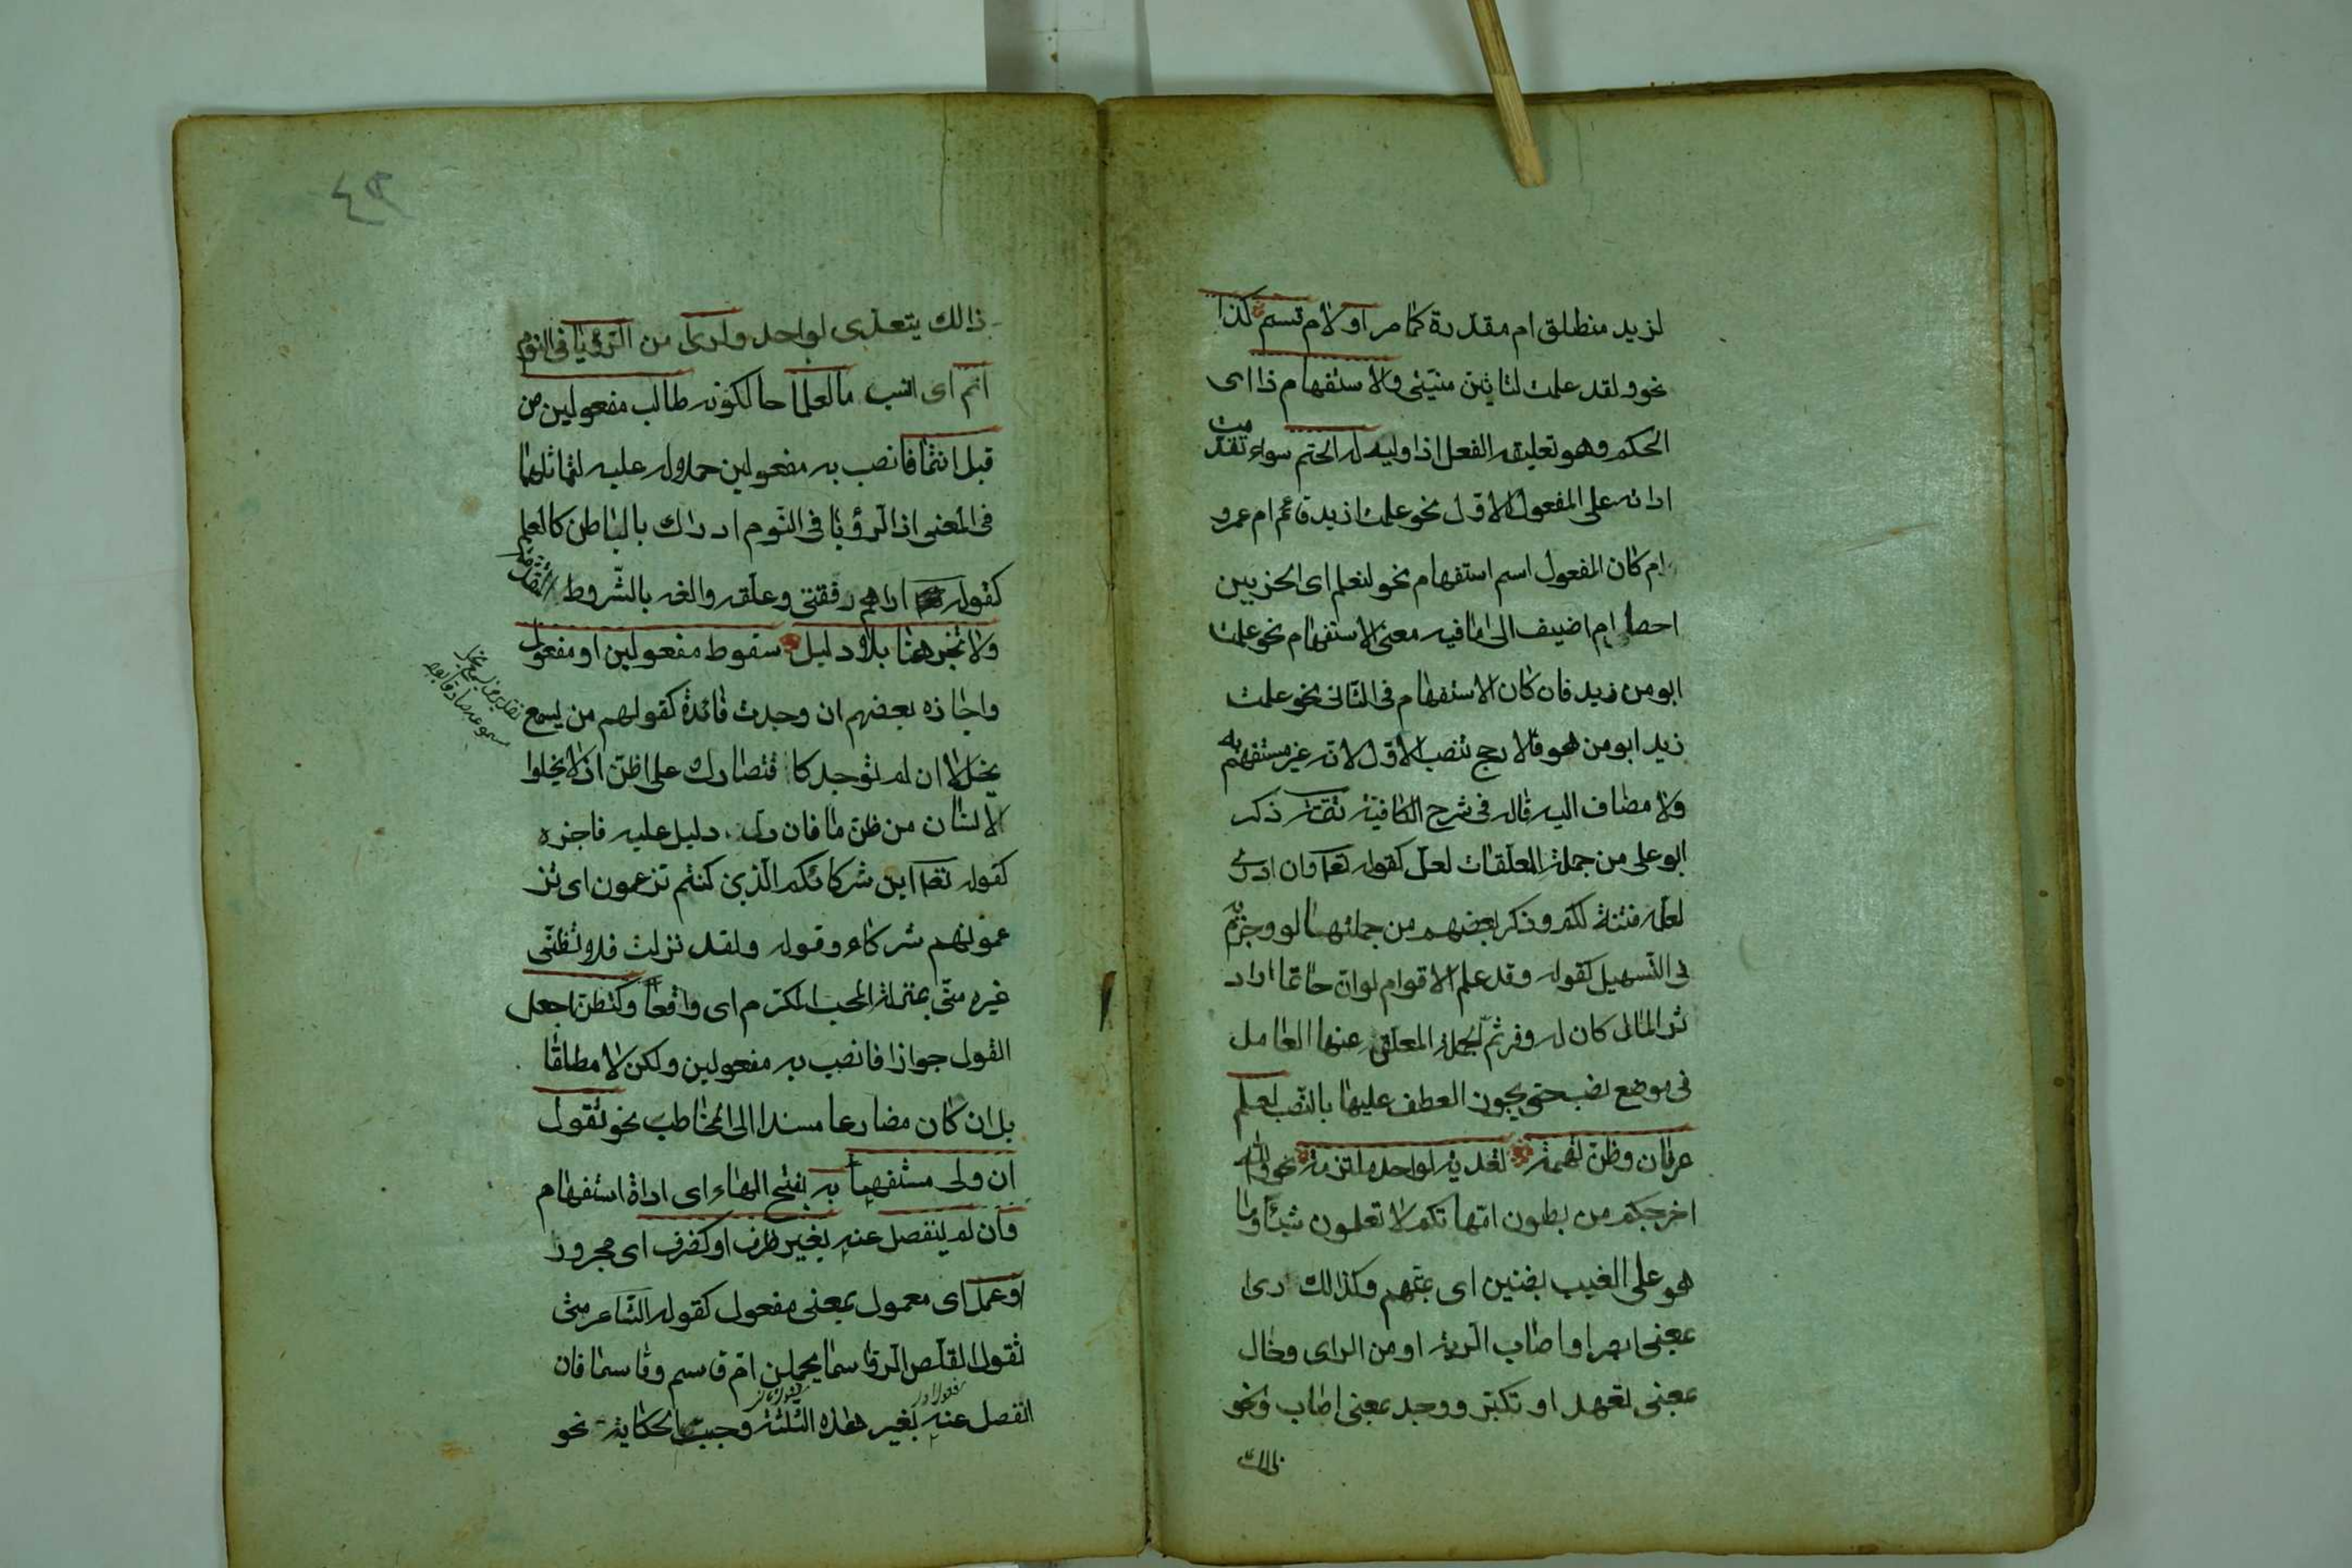 لزيد منطلق ام مقدرة كما مر او لام قسم كذا
نحو ولقد علمت لتاتين منيتى والاستفهام ذا اى
الحكم وهو تعليق الفعل اذا وليه له انحتم سواء تقدمت
اداته على المفعول الاول نحو علمت ازيد قائم ام عمرو
ام كان المفعول اسم استفهام نحو لنعلم اى الحزبين
احصا ام اضيف الى ما فيه معنى الاستفهام نحو علمت
ابو من زيد فان كان الاستفهام فى الثانى نحو علمت
زيد ابو من هو فالارجح نصب الاول لانه غير مستفهم به
ولا مضاف اليه قاله فى شرح الكافية تتمة ذكر
ابو على من جملة المعلقات لعل كقوله تعا وان ادرى
لعله فتنة لكم وذكر بعضهم من جملتها لو وجزم به
فى التسهيل كقوله وقد علم الاقوام لو ان حاتما اراد
ثراء المال كان له وفر ثم الجملة المعلق عنها العامل
فى موضع نصب حتى يجوز العطف عليها بالنصب لعلم
عرفان وظن تهمة تعدية لواحد ملتزمة نحو والله
اخرجكم من بطون امهاتكم لا تعلمون شيئا وما
هو على الغيب بضنين اى بمتهم وكذلك راى
بمعنى ابصر او اصاب الرية او من الراى وخال
بمعنى تعهد او تكبر ووجد بمعنى اصاب ونحو
ذالك
٤٣
ذالك يتعدى لواحد ولراى من الرؤيا فى النوم
انم اى انسب ما لعلما حالكونه طالب مفعولين من
قبل انتما فانصب به مفعولين حملا له عليه لتماثلهما
فى المعنى اذ الرؤيا فى النوم ادراك بالباطن كالعلم
كقوله اراهم رفقتى وعلقه والغه بالشروط المتقدمة
ولا تجز هنا بلا دليل سقوط مفعولين او مفعول
واجازه بعضهم ان وجدت فائدة كقولهم من يسمع
يخل لا ان لم توجد كاقتصارك على اظن اذ لا يخلوا
الانسان من ظن ما فان دل دليل عليه فاجزه
كقوله تعا اين شركائكم الذين كنتم تزعمون اى تز
عمونهم شركاء وقوله ولقد نزلت فلا تظنى
غيره منى بمنزلة المحب المكرم اى واقعا وكتظن اجعل
القول جوازا فانصب به مفعولين ولكن لا مطلقا
بل ان كان مضارعا مسندا الى المخاطب نحو تقول
ان ولى مستفهما به بفتح الهاء اى اداة استفهام
وان لم ينفصل عنه بغير ظرف او كظرف اى مجرور
او عمل اى معمول بمعنى مفعول كقوله الشاعر متى
تقول القلص الرواسما يحملن ام قاسم وقاسما فان
انفصل عنه بغير هذه الثلثة وجبت الحكاية نحو